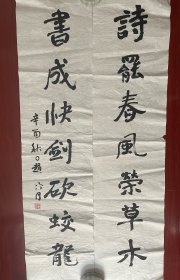 詩罷春風榮草木
書成快劍砍蛟龍
辛酉秋日趙冷月